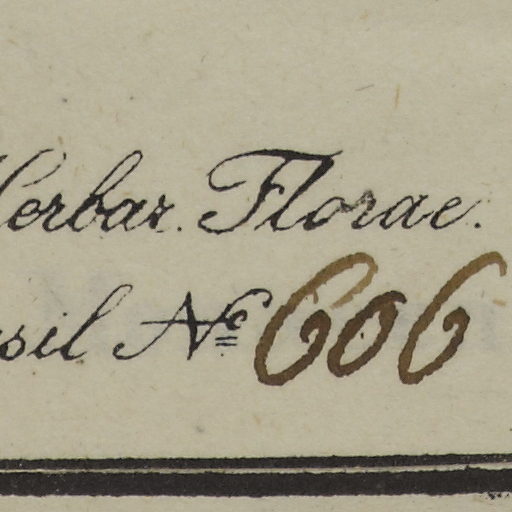 Herbar. Florae.
sil Nº 606